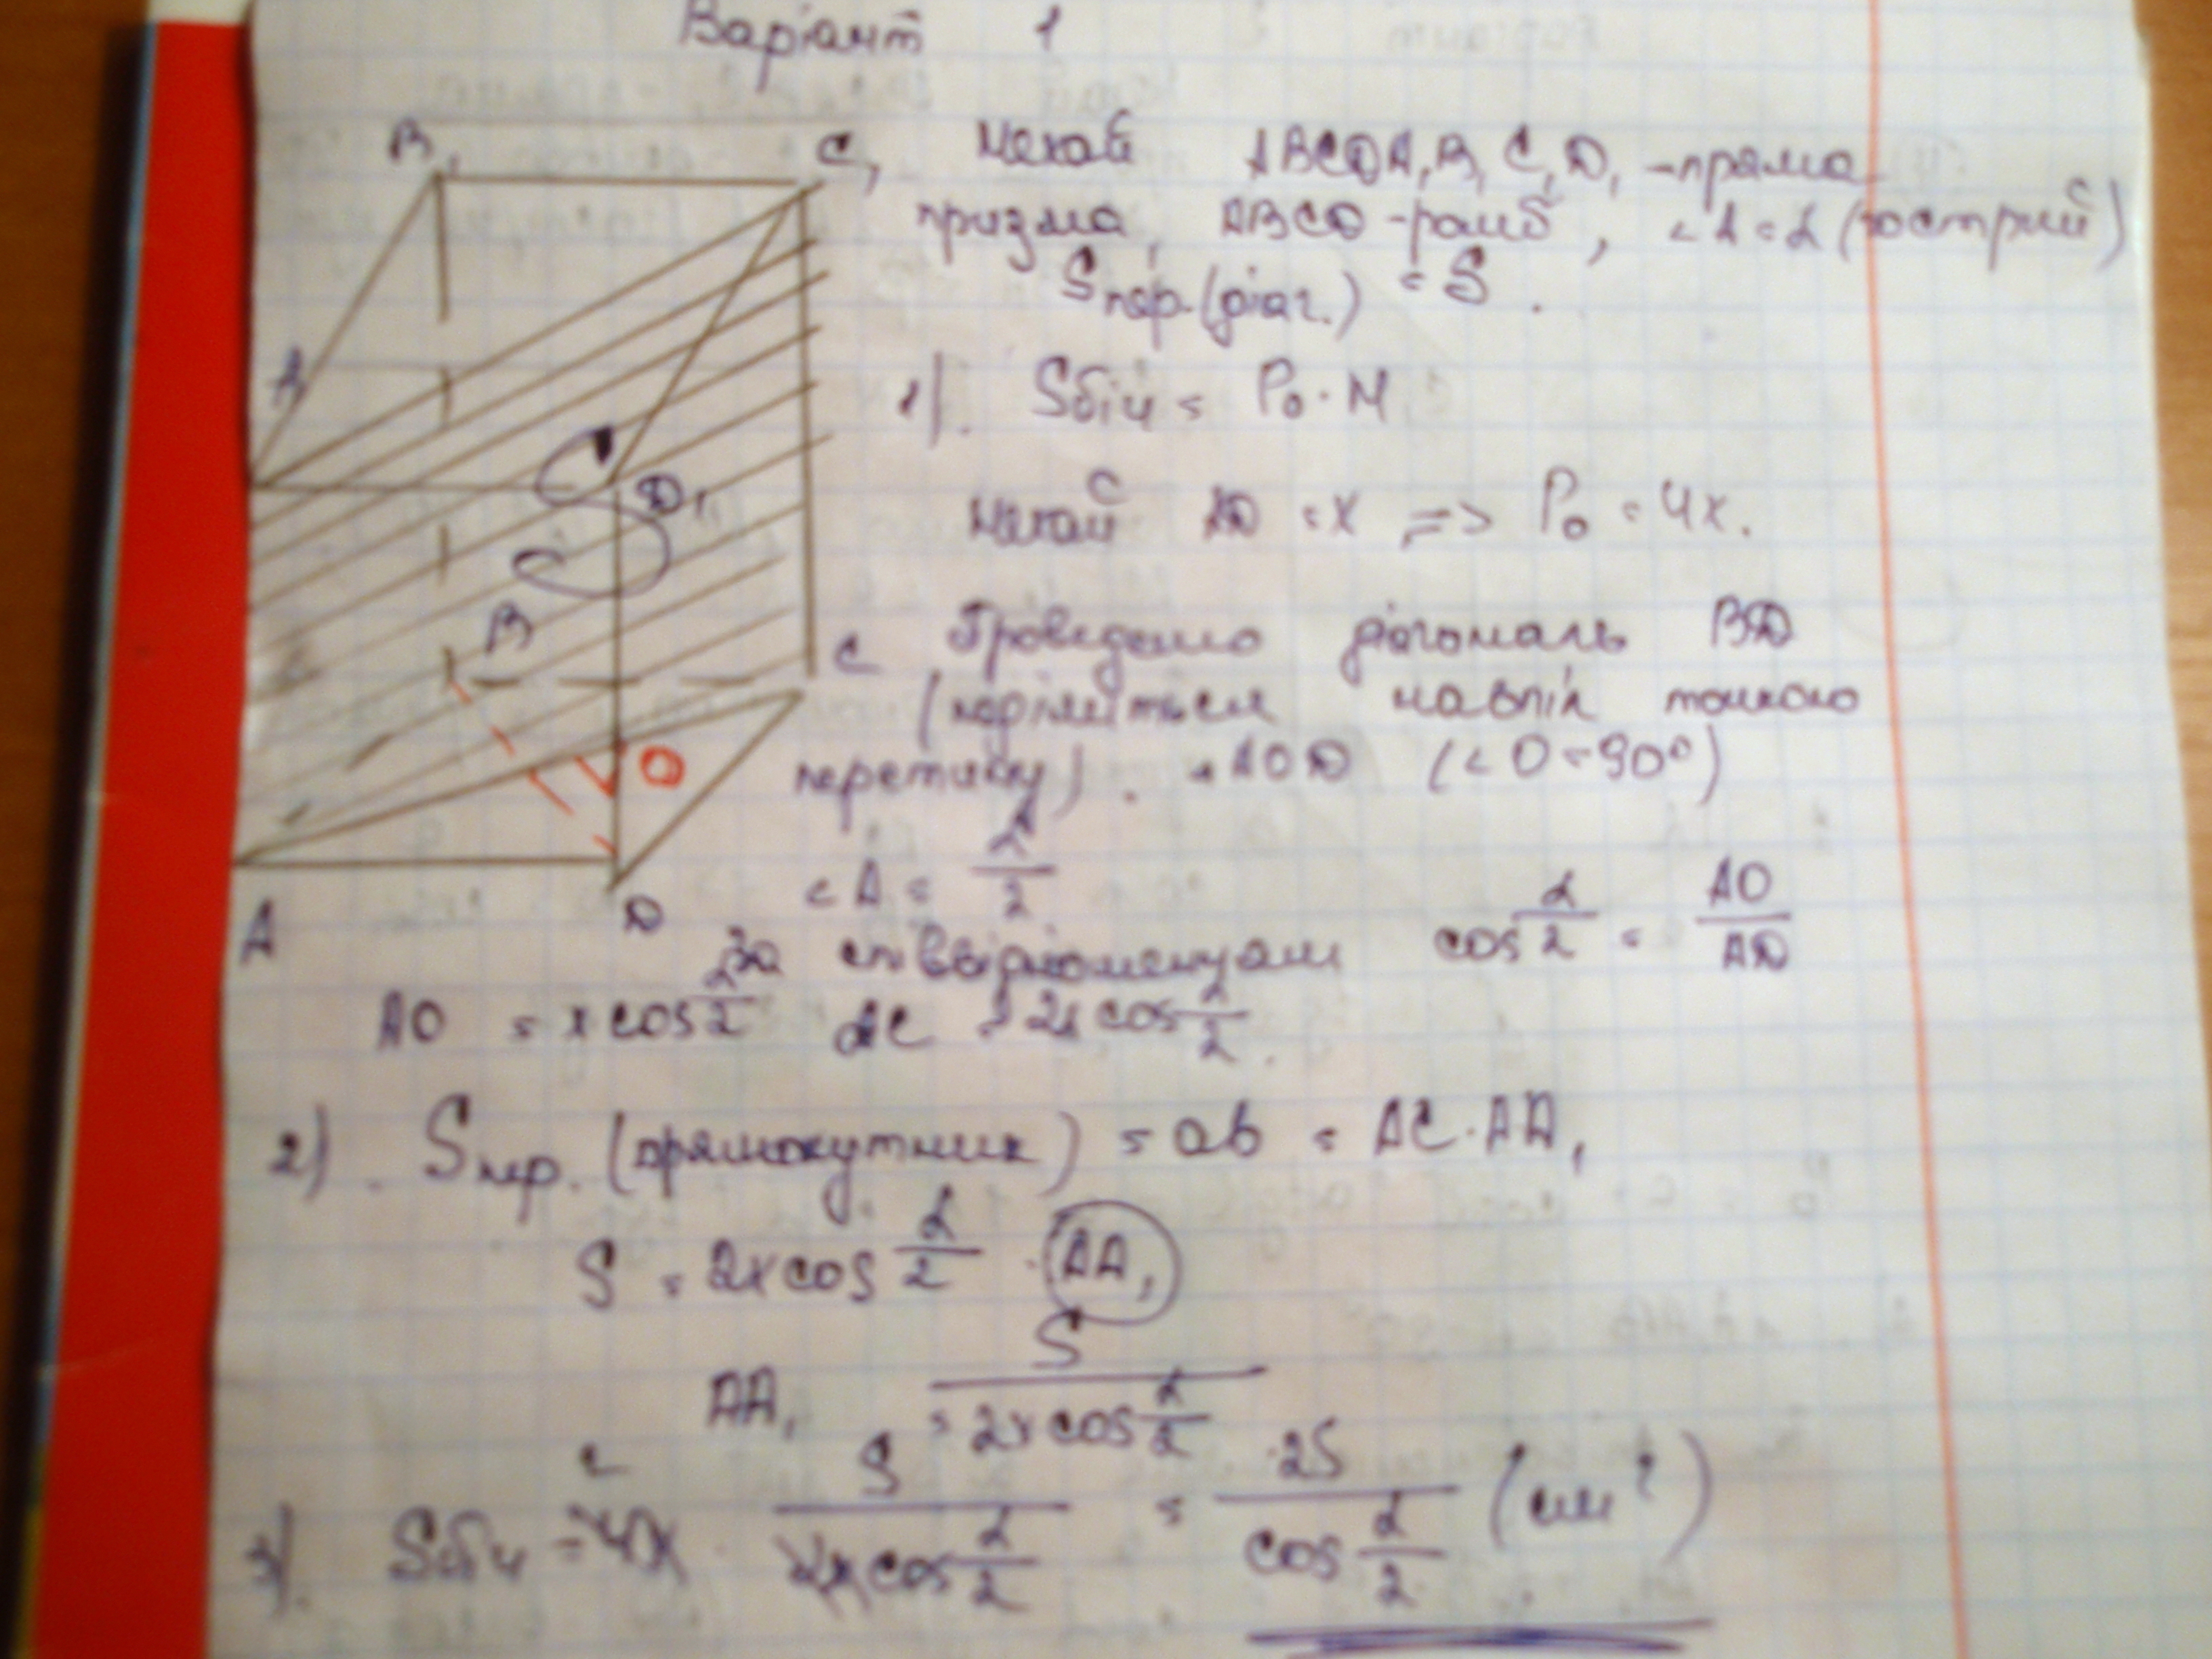 Варіант 1
B₁
C₁
Нехай ABCDA₁B₁C₁D₁ - пряма
призма, ABCD - ромб, <A = α (гострий)
Sпер.(діаг.) = S.
A
1). Sбіч = Pо · H
S
D₁
Нехай AD = x => Pо = 4x.
B
C
Проведемо діагональ BD
(поділиться навпіл точкою
O
перетину). AOD (<O = 90°)
<A = α/2
cos α/2 = AO/AD
A
D
За співвідношенням
AO = x cos α/2 AC = 2x cos α/2.
2). Sпер. (прямокутник) = ab = AC · AA₁
S = 2x cos α/2 · AA₁
AA₁ = S/(2x cos α/2)
3). Sбіч = 4x · S/(2x cos α/2) = 2S/(cos α/2) (см²)